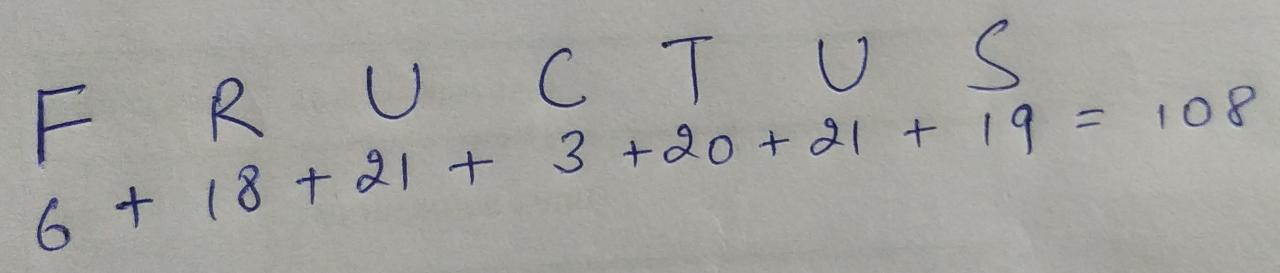 F R U C T U S
6 + 18 + 21 + 3 + 20 + 21 + 19 = 108